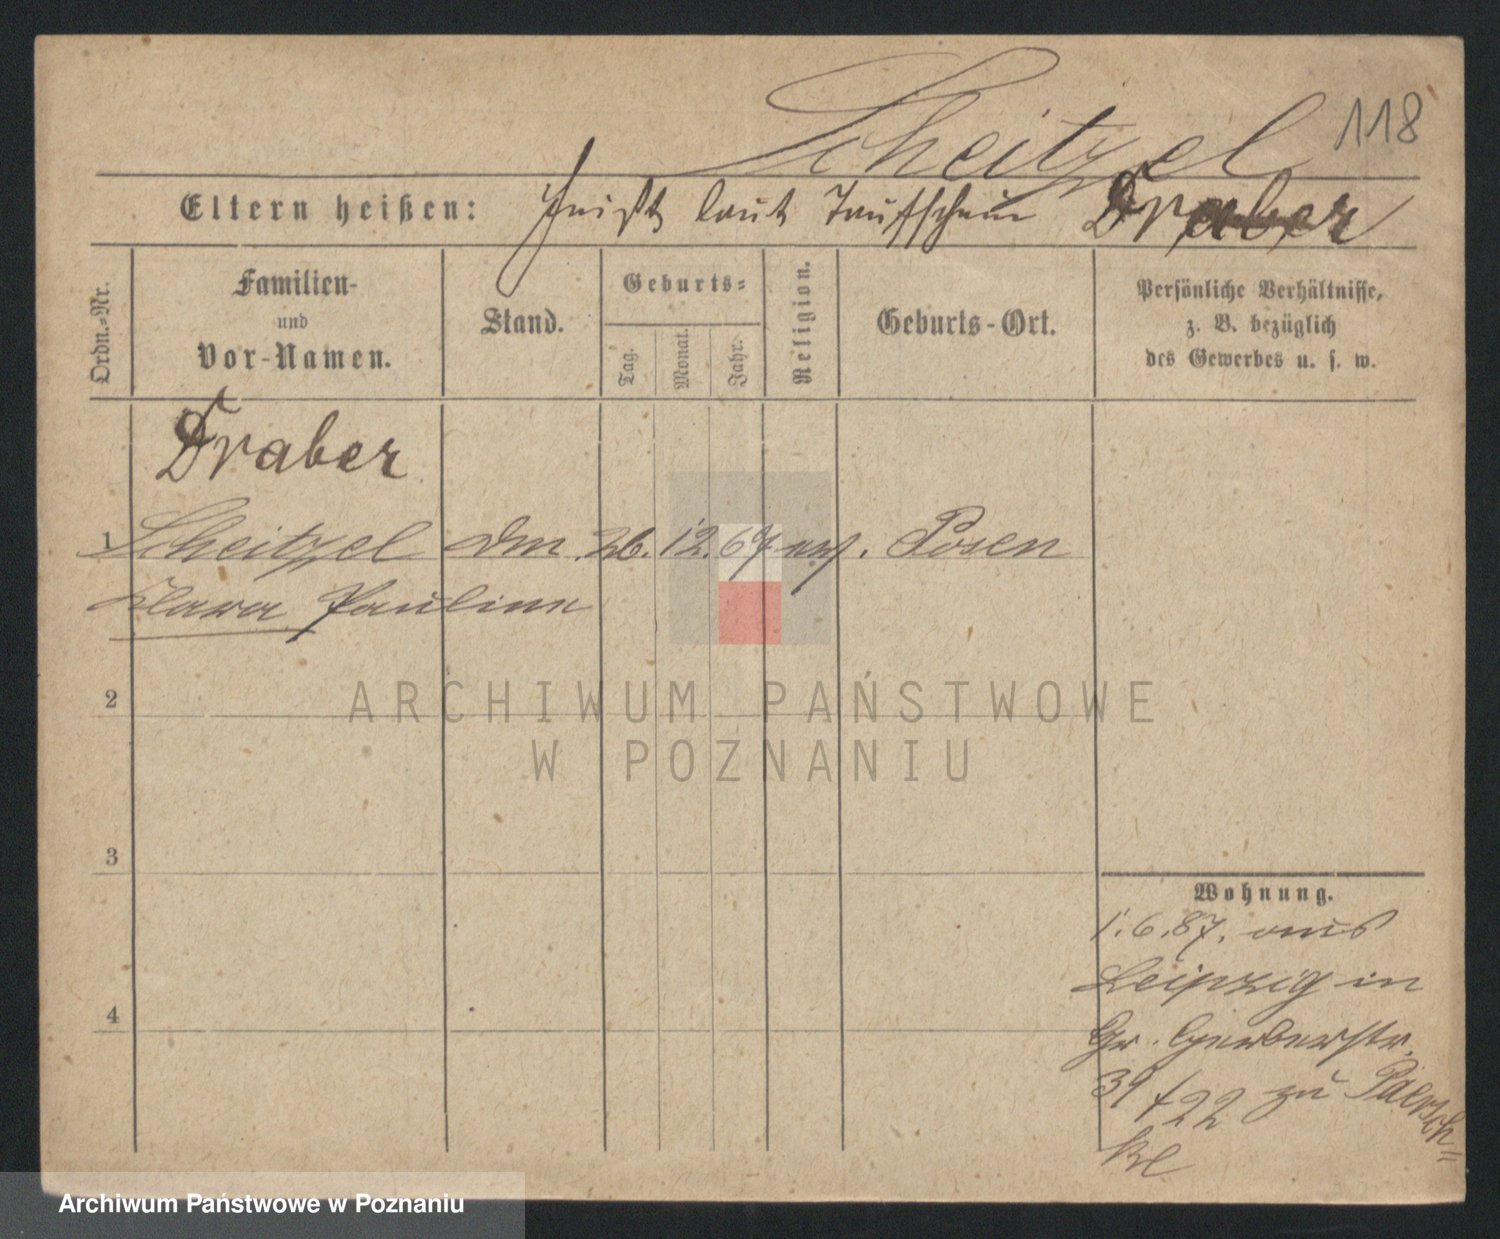 Scheitzel 118
Eltern heißen: heißt laut Taufschein Draber
Ordn.-Nr.
Familien-
und
Vor-Namen.
Stand.
Geburts-
Tag.
Monat.
Jahr.
Religion.
Geburts-Ort.
Persönliche Verhältnisse,
z. B. bezüglich
des Gewerbes u. s. w.
Draber
1 Scheitzel 26. 12. 67 Posen
Clara Pauline
2
3
4
Wohnung.
1.6.87. aus
Leipzig in
Gr. Gerberstr.
39 22 zu
ARCHIWUM PAŃSTWOWE
W POZNANIU
Archiwum Państwowe w Poznaniu